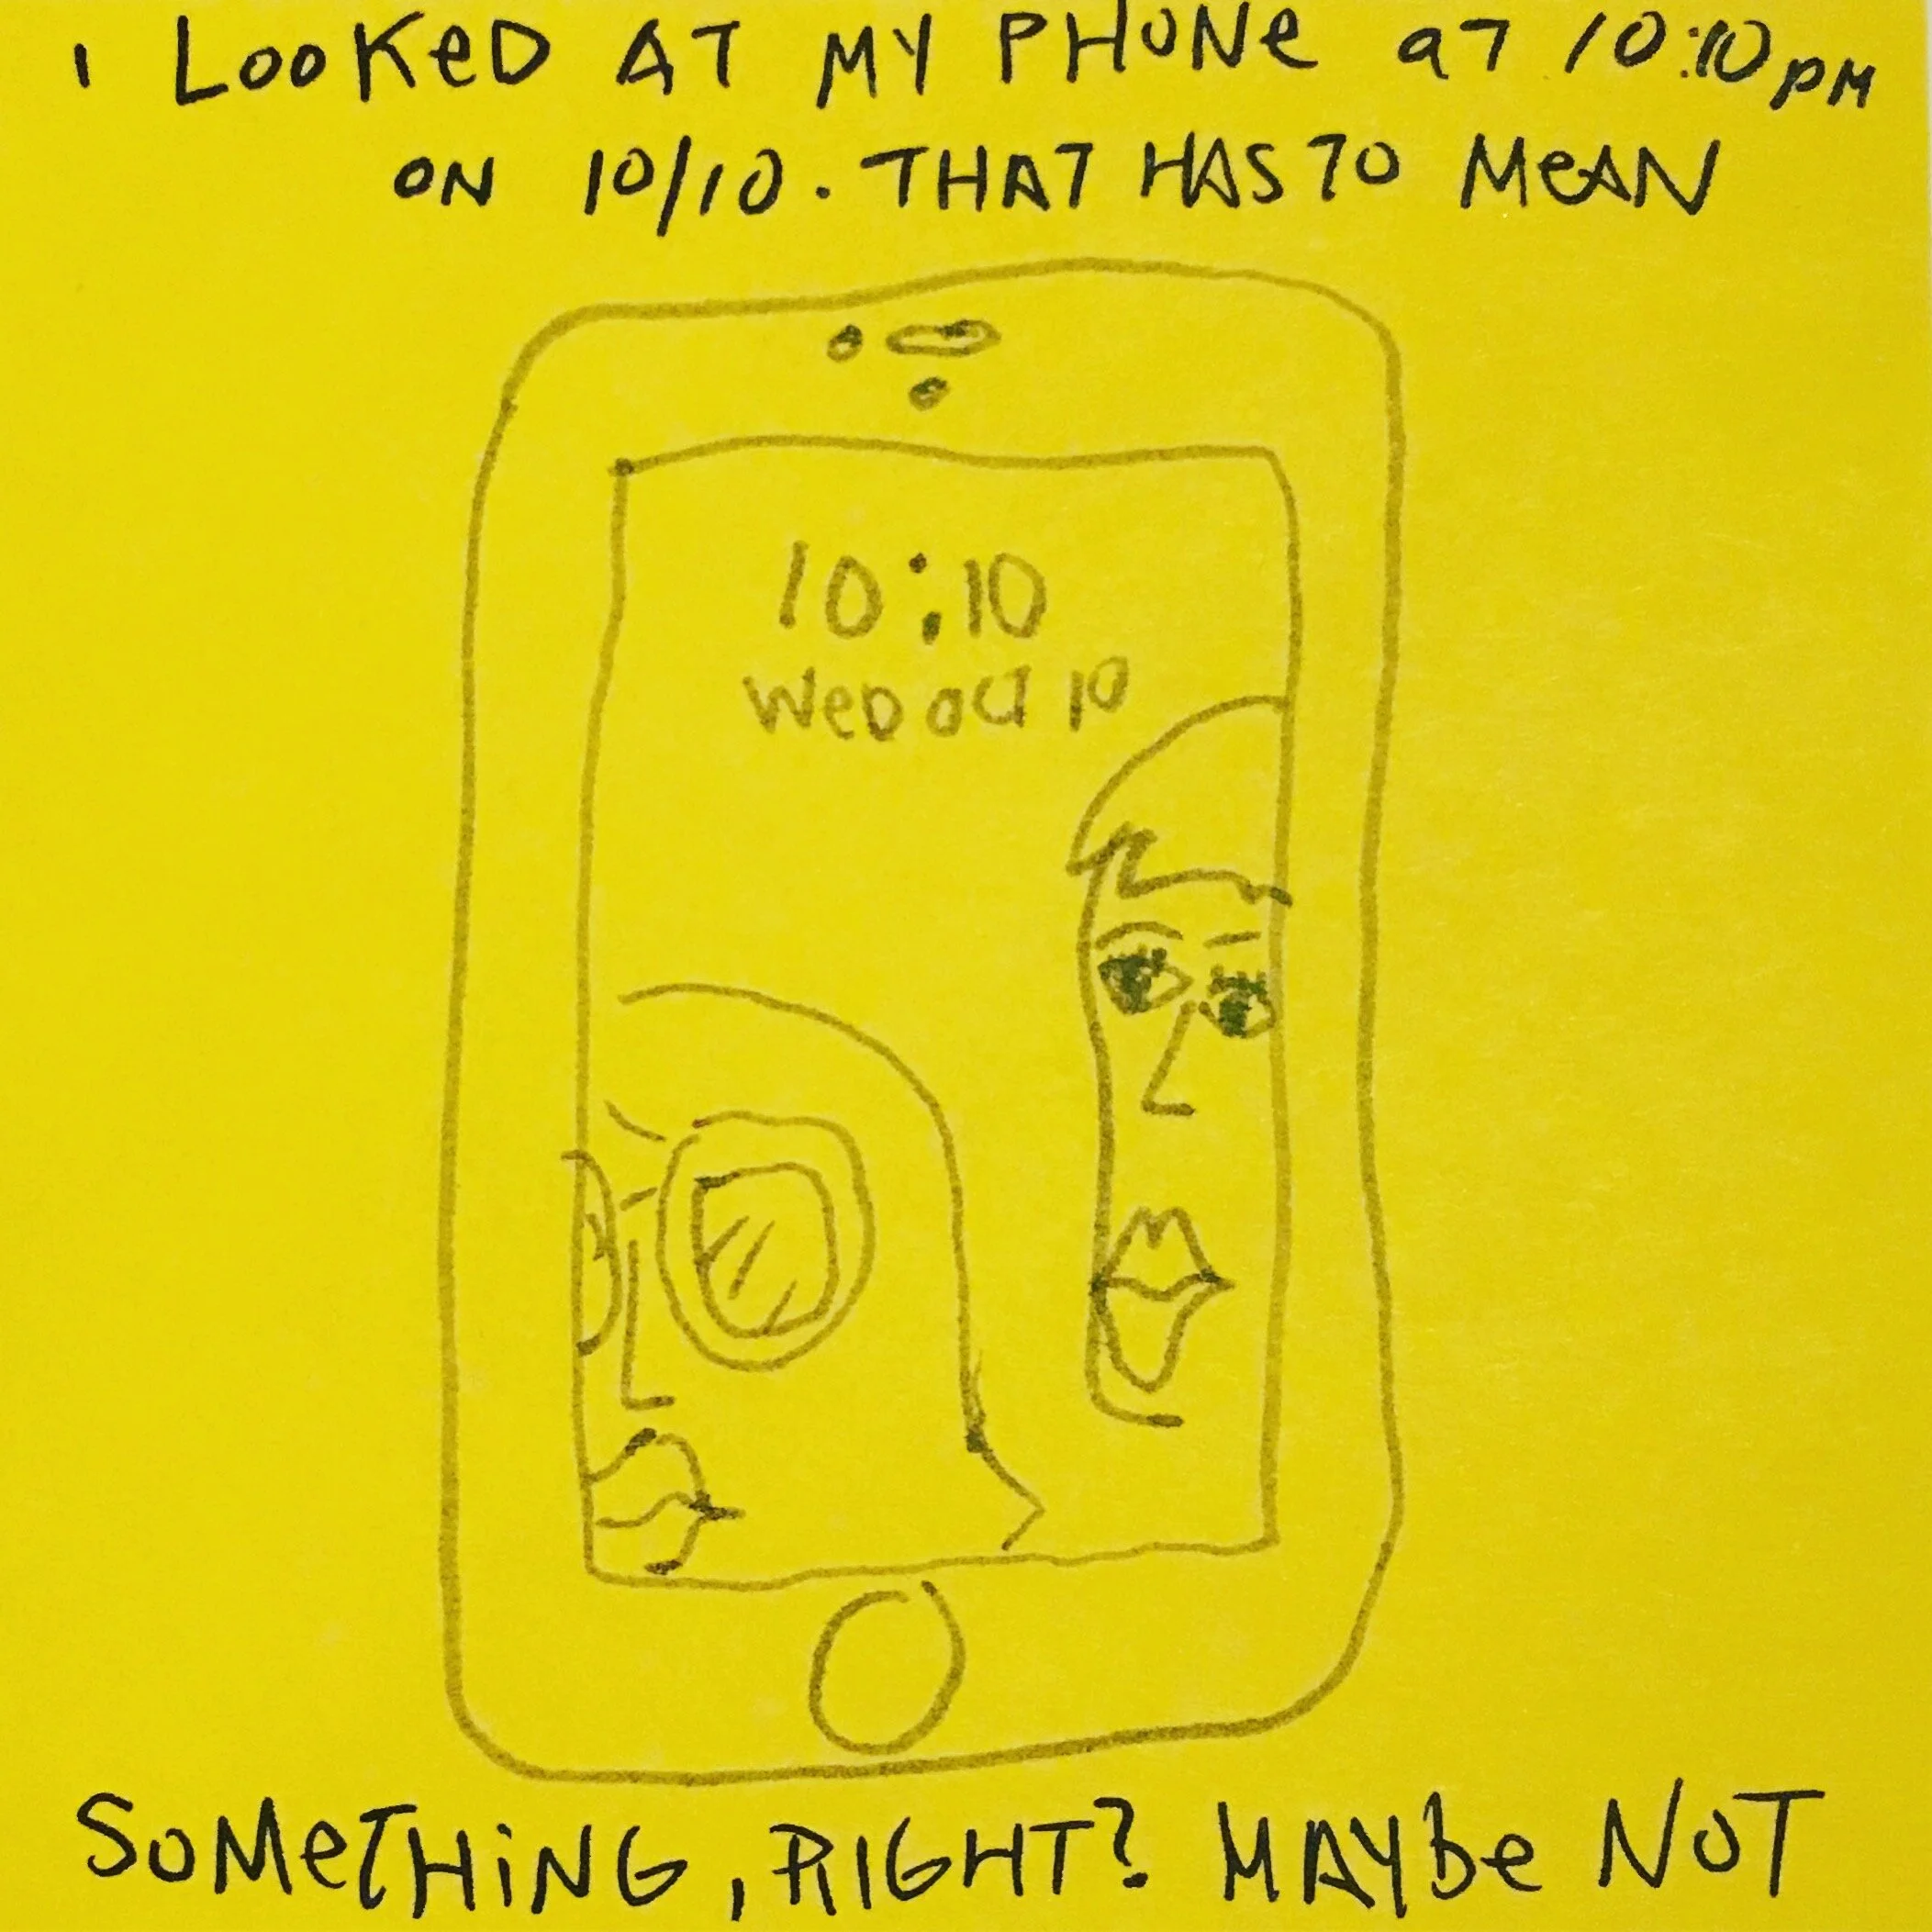 I LOOKeD AT MY PHONe aT 10:10pM
ON 10/10. THAT HAS TO MeAN
10:10
WeD oCT 10
SOMeTHiNG, RIGHT? MAYbe NOT